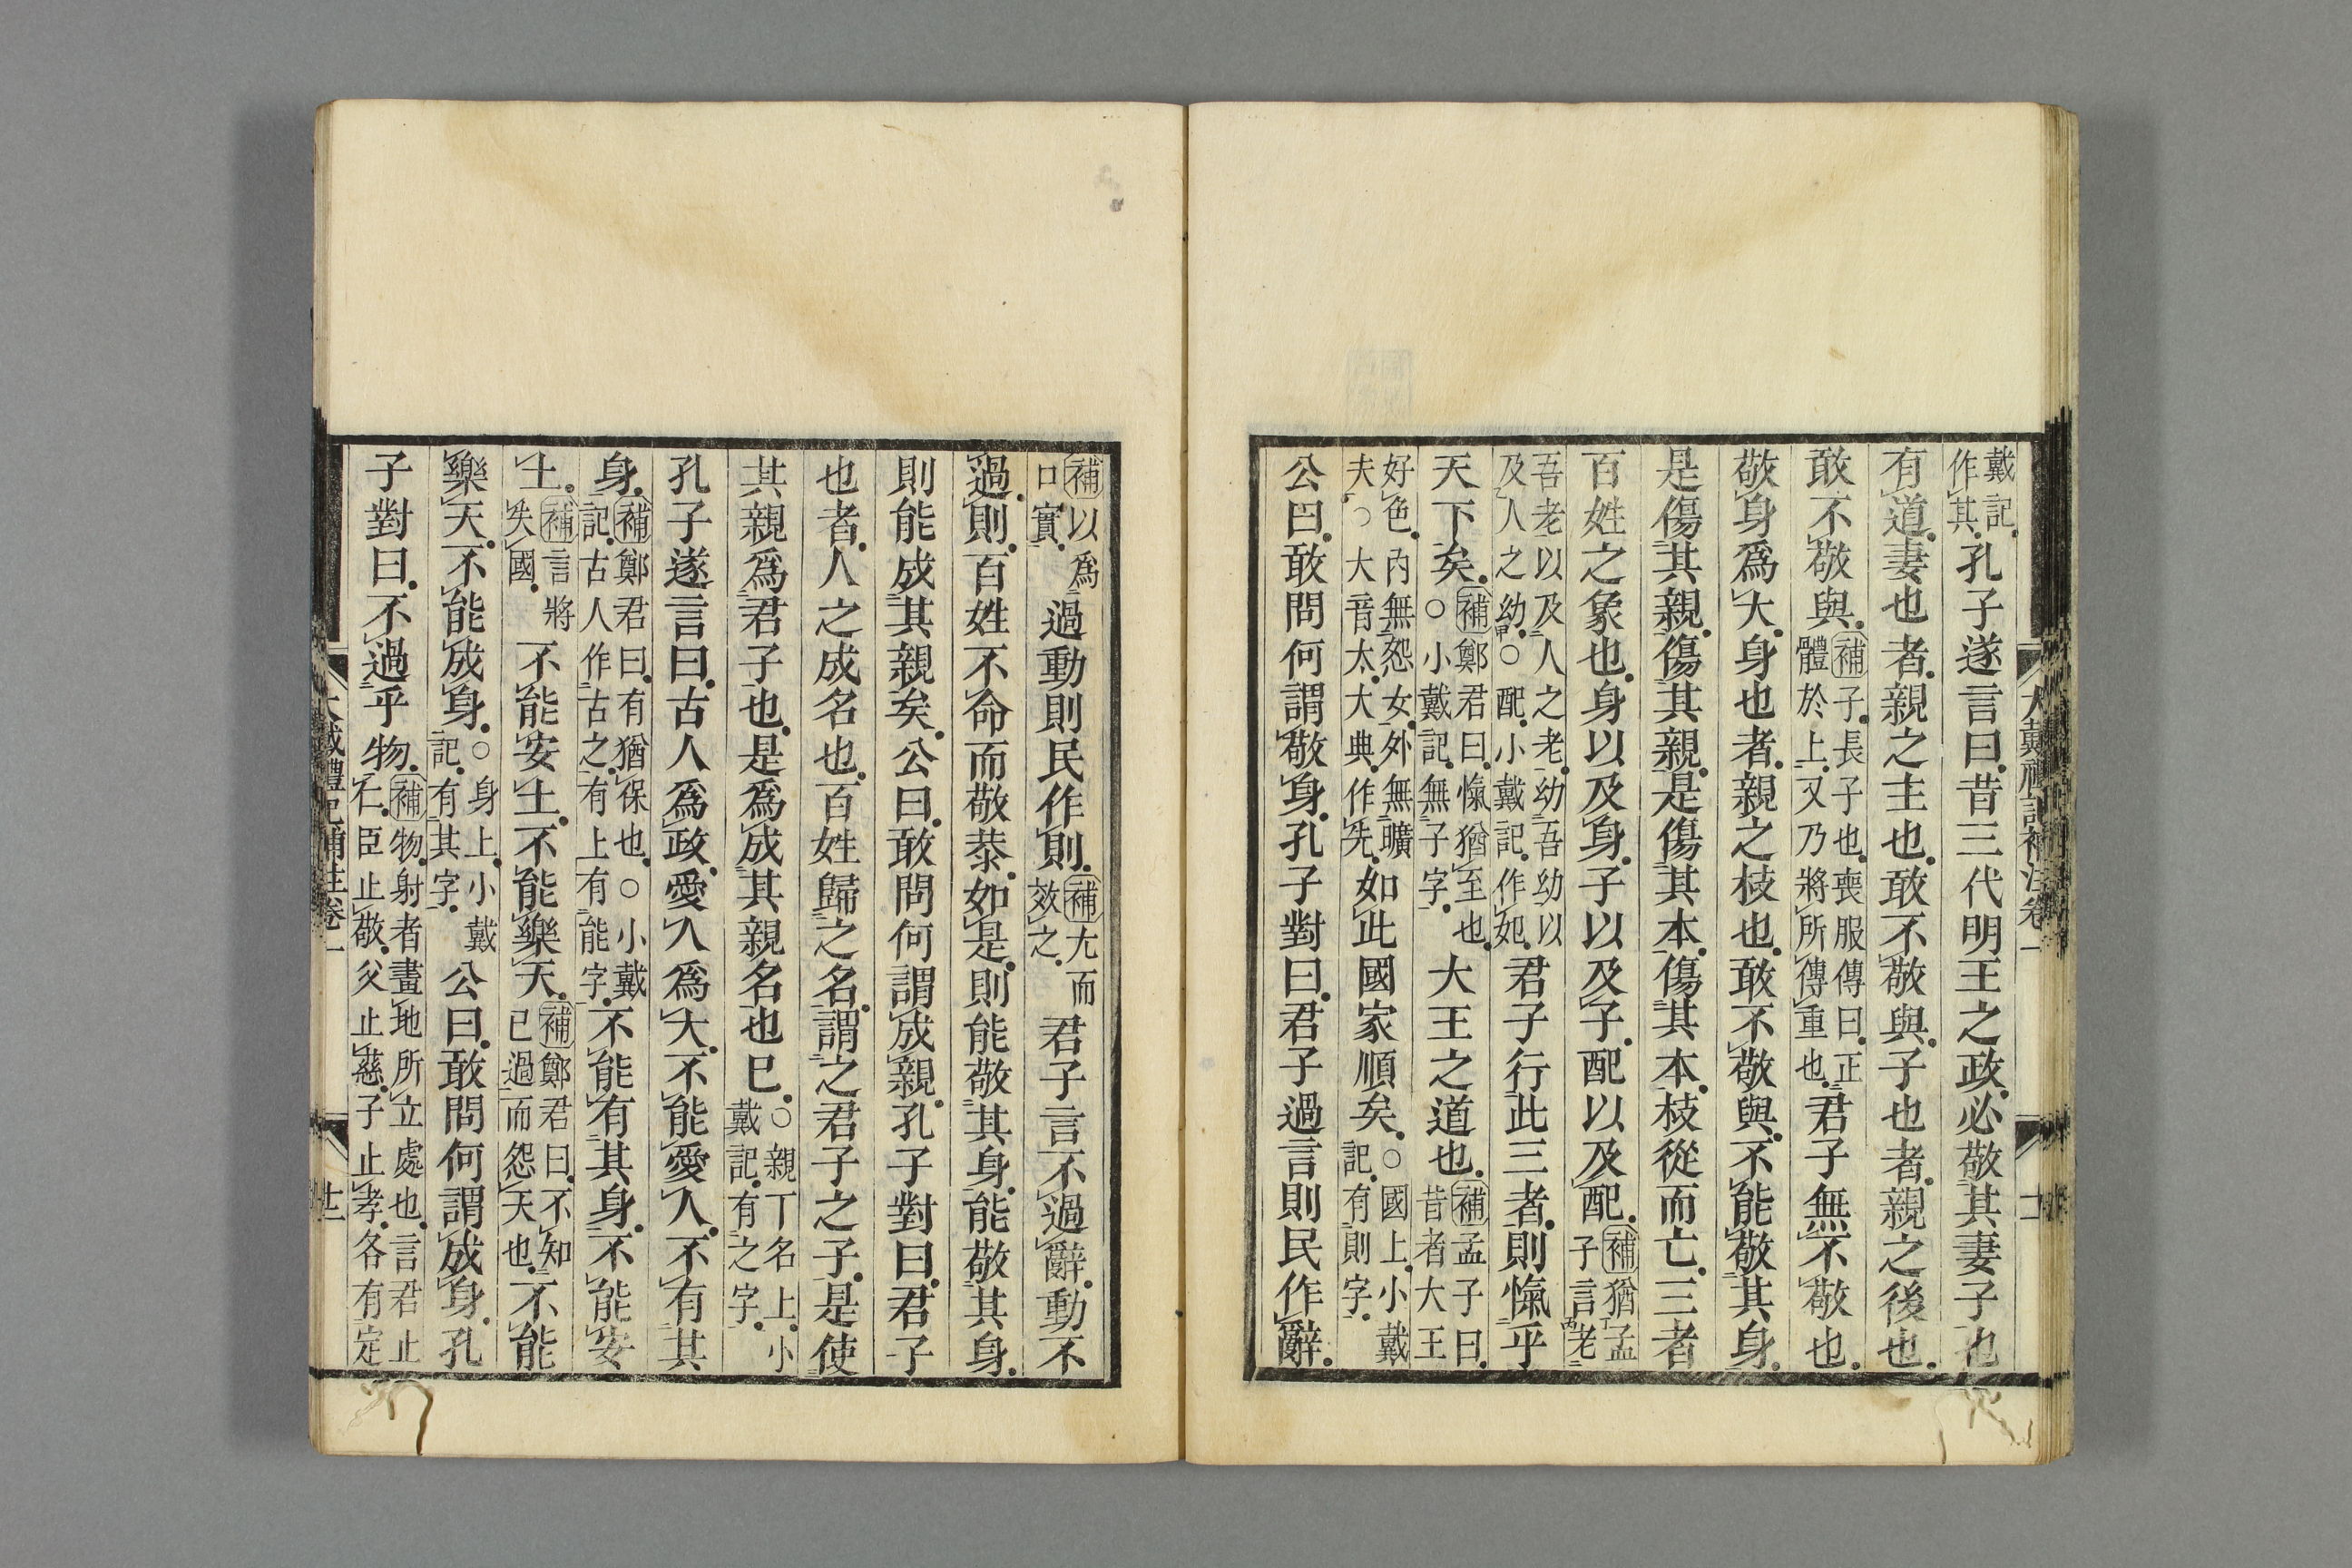 戴記作其孔子遂言曰昔三代明王之政必敬其妻子也
有道妻也者親之主也敢不敬與子也者親之後也
敢不敬與補子長子也喪服傳曰正體於上又乃將所傳重也君子無不敬也
敬身爲大身也者親之枝也敢不敬與不能敬其身
是傷其親傷其親是傷其本傷其本枝從而亡三者
百姓之象也身以及身子以及子配以及配補猶孟子言老
吾老以及人之老幼吾幼以及人之幼○配小戴記作妃君子行此三者則愾乎
天下矣補鄭君曰愾猶至也○小戴記無子字大王之道也補孟子曰昔者大王
好色內無怨女外無曠夫○大音太大典作先如此國家順矣○國上小戴記有則字
公曰敢問何謂敬身孔子對曰君子過言則民作辭
大戴禮記補注卷一
補以爲口實過動則民作則補尤而效之君子言不過辭動不
過則百姓不命而敬恭如是則能敬其身能敬其身
則能成其親矣公曰敢問何謂成親孔子對曰君子
也者人之成名也百姓歸之名謂之君子之子是使
其親爲君子也是爲成其親名也已○親下名上小戴記有之字
孔子遂言曰古人爲政愛人爲大不能愛人不有其
身補鄭君曰有猶保也○小戴記古人作古之有上有能字不能有其身不能安
土補言將失國不能安土不能樂天補鄭君曰不知已過而怨天也不能
樂天不能成身○身上小戴記有其字公曰敢問何謂成身孔
子對曰不過乎物補物射者畫地所立處也言君止仁臣止敬父止慈子止孝各有定
大戴禮記補注卷一